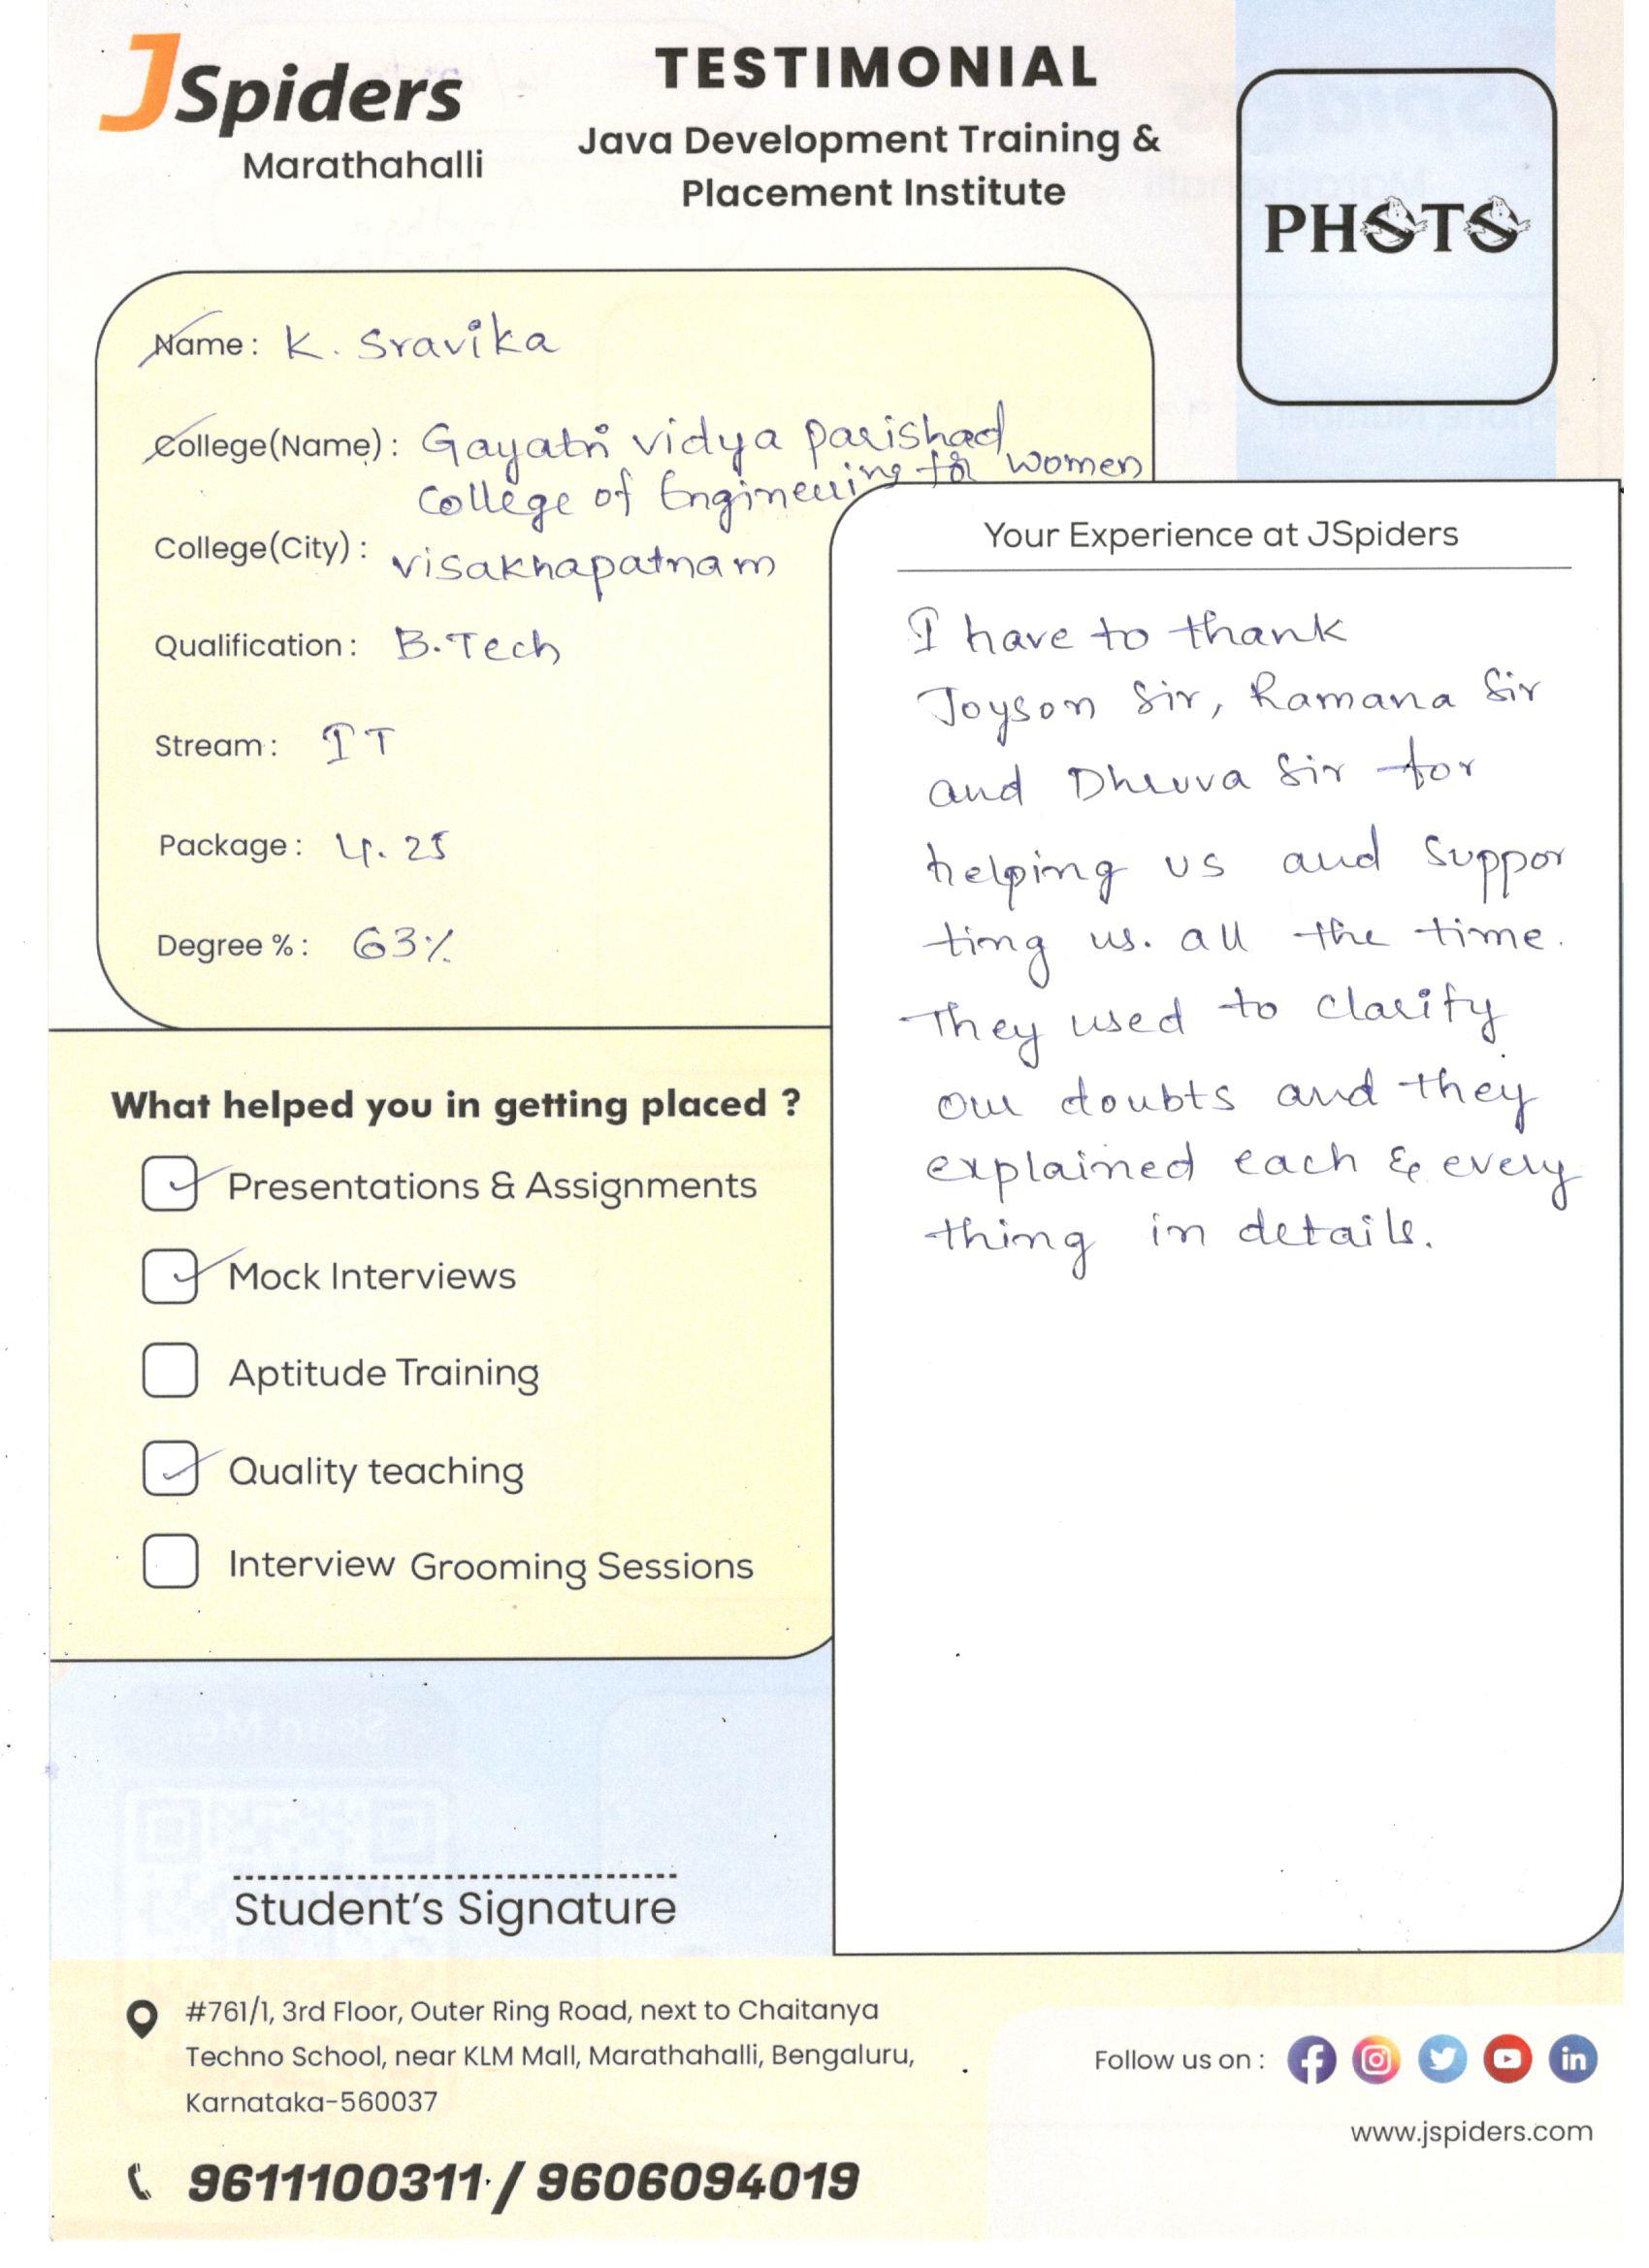 JSpiders
Marathahalli
TESTIMONIAL
Java Development Training &
Placement Institute
PHOTO
Name : K. Sravika
College(Name) : Gayatri vidya parishad
college of Engineering for women
College(City) : visakhapatnam
Qualification : B.Tech
Stream : IT
Package : 4.25
Degree % : 63%
What helped you in getting placed ?
Presentations & Assignments
Mock Interviews
Aptitude Training
Quality teaching
Interview Grooming Sessions
Your Experience at JSpiders
I have to thank
Joyson Sir, Ramana Sir
and Dhruva Sir for
helping us and suppor
ting us. all the time.
They used to clarify
our doubts and they
explained each & every
thing in details.
Student's Signature
#761/1, 3rd Floor, Outer Ring Road, next to Chaitanya
Techno School, near KLM Mall, Marathahalli, Bengaluru,
Karnataka-560037
9611100311 / 9606094019
Follow us on :
www.jspiders.com